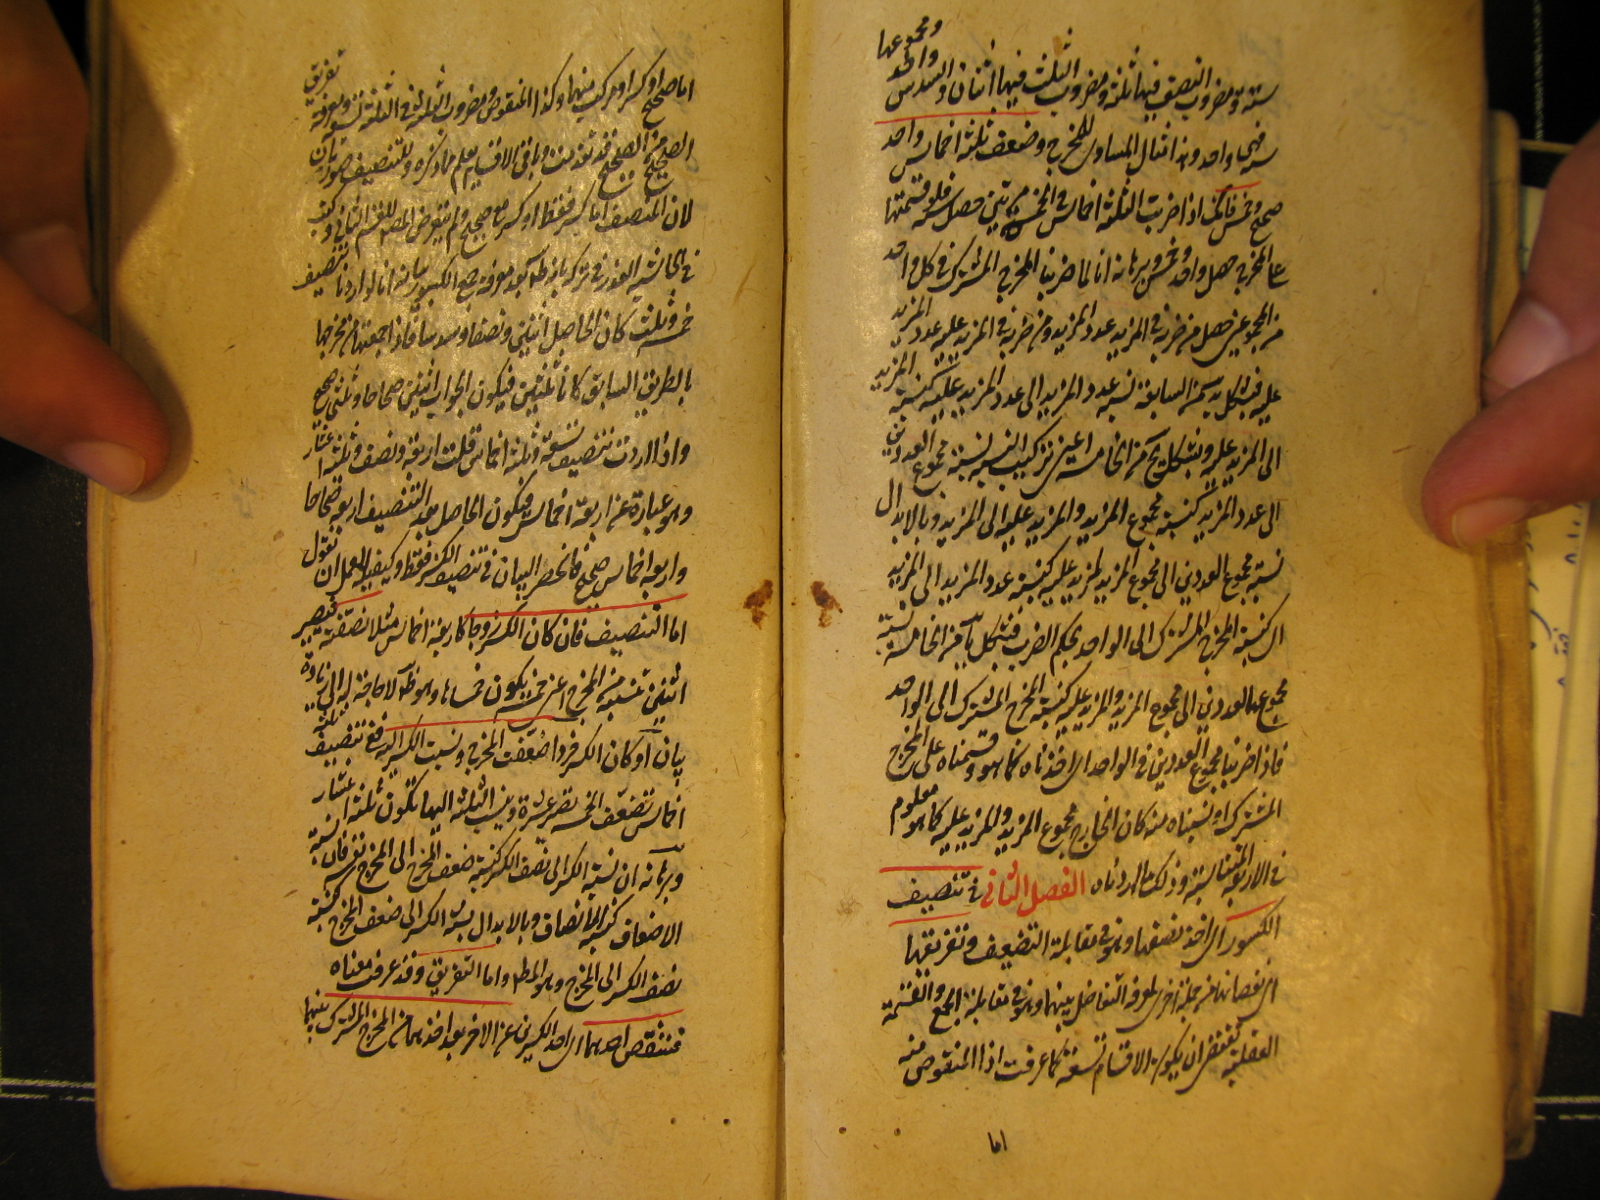 ستة ومضروب النصف فيها ثلثة ومضروب الثلث فيها اثنان والسدس واحد ومجموعها
ستة فهى واحد وهذا مثال المساوى للمخرج وضعف ثلثة اخماس واحد
صحيح وخمس فانك اذا ضربت الثلثة اخماس فى المخرج مرتين حصل ستة فلو قسمتها
على المخرج حصل واحد وخمس برهانه انا لما ضربنا المخرج المشترك فى كل واحد
من المجموعين حصل من ضربه فى المزيد عدد المزيد ومن ضربه فى المزيد عليه عدد المزيد
عليه فبشكل من السابعة نسبة عدد المزيد الى عدد المزيد عليه كنسبة المزيد
الى المزيد عليه وبشكل من الخامسة اعنى تركيب النسبة نسبة مجموع العددين
الى عدد المزيد كنسبة مجموع المزيد والمزيد عليه الى المزيد وبالابدال
نسبة مجموع العددين الى مجموع المزيد والمزيد عليه كنسبة عدد المزيد الى المزيد
اى كنسبة المخرج المشترك الى الواحد بحكم الضرب فبشكل من الخامسة نسبة
مجموع العددين الى مجموع المزيد والمزيد عليه كنسبة المخرج المشترك الى الواحد
فاذا ضربنا مجموع العددين فى الواحد اى اخذناه كما هو وقسمناه على المخرج
المشترك او نسبناه منه كان الخارج مجموع المزيد والمزيد عليه كما هو معلوم
فى الاربعة المتناسبة وذلك ما اردناه الفصل الثانى فى تنصيف
الكسور اى اخذ نصفها وهو فى مقابلة التضعيف وتفريقها
اى نقصانها من جملة اخرى لمعرفة التفاضل بينهما وهو فى مقابلة الجمع والقسمة
العقلية تقتضى ان يكون الاقسام تسعة كما عرفت اذ المنقوص منه
اما
اما صحيح او كسر او مركب منهما وكذا المنقوص ومضروب الثلثة فى الثلثة تسعة ومعرفة تفريق
الصحيح من الصحيح قد تقدمت وباقى الاقسام يعلم مما ذكره وللتنصيف صورتان
لان المنصف اما كسر فقط او كسر مع صحيح ولم يتعرض المص للقسم الثانى وكتب
فى الحاشية العذر فى تركه بانه ظاهر بعد معرفة جمع الكسور بيانه انا لو اردنا تنصيف
خمسة وثلث كان الحاصل اثنين ونصفا وسدسا فاذا جمعتهما من مخرجهما
بالطريق السابق كانا ثلثين فيكون الجواب اثنين صحاحا وثلثى صحيح
واذا اردت تنصيف تسعة وثلثة اخماس قلت اربعة ونصف وثلثة اعشار
وهو عبارة عن اربعة اخماس فيكون الحاصل بعد التنصيف اربعة صحاحا
واربعة اخماس صحيح فانحصر البيان فى تنصيف الكسر فقط وكيفية العمل ان نقول
اما التنصيف فان كان الكسر زوجا كاربعة اخماس مثلا نصفته فتصير
اثنين تنسبه من المخرج اعنى خمسة يكون خمساها وهو ظاهر لا حاجة له الى زيادة
بيان او كان الكسر فردا ضعفت المخرج ونسبت الكسر اليه ففى تنصيف ثلثة
اخماس تضعف الخمسة تصير عشرة وينسب الثلثة اليها تكون ثلثة اعشار
وبرهانه ان نسبة الكسر الى نصف الكسر كنسبة ضعف المخرج الى المخرج فان نسبة
الاضعاف كنسبة الانصاف وبالابدال نسبة الكسر الى ضعف المخرج كنسبة
نصف الكسر الى المخرج وهو المط واما التفريق وقد عرفت معناه
فتنقص احدهما اى احد الكسرين عن الاخر بعد اخذهما من المخرج المشترك بينهما